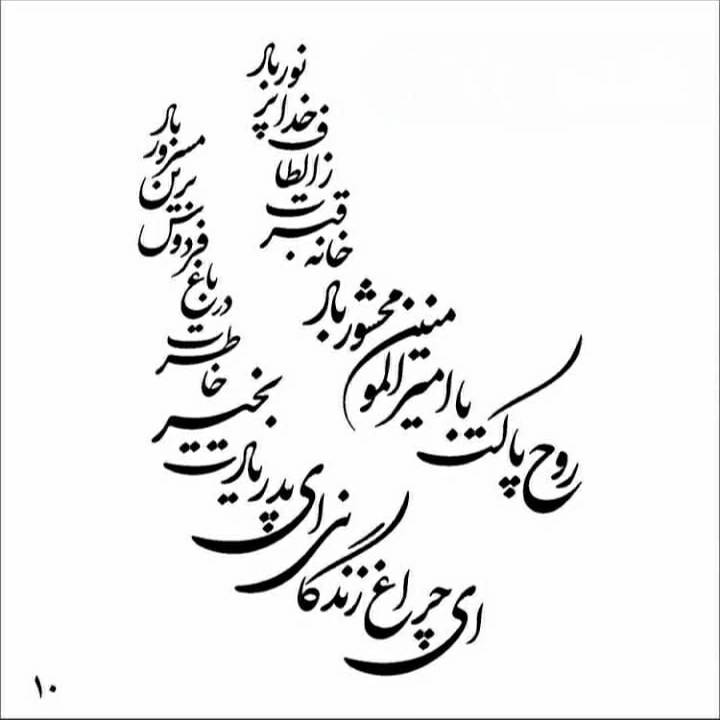 روح پاکت با امیرالمومنین محشور باد
خانه قبرت ز الطاف خدا پر نور باد
ای چراغ زندگانی ای پدر یادت بخیر
خاطرت در باغ فردوس برین مسرور باد
۱۰